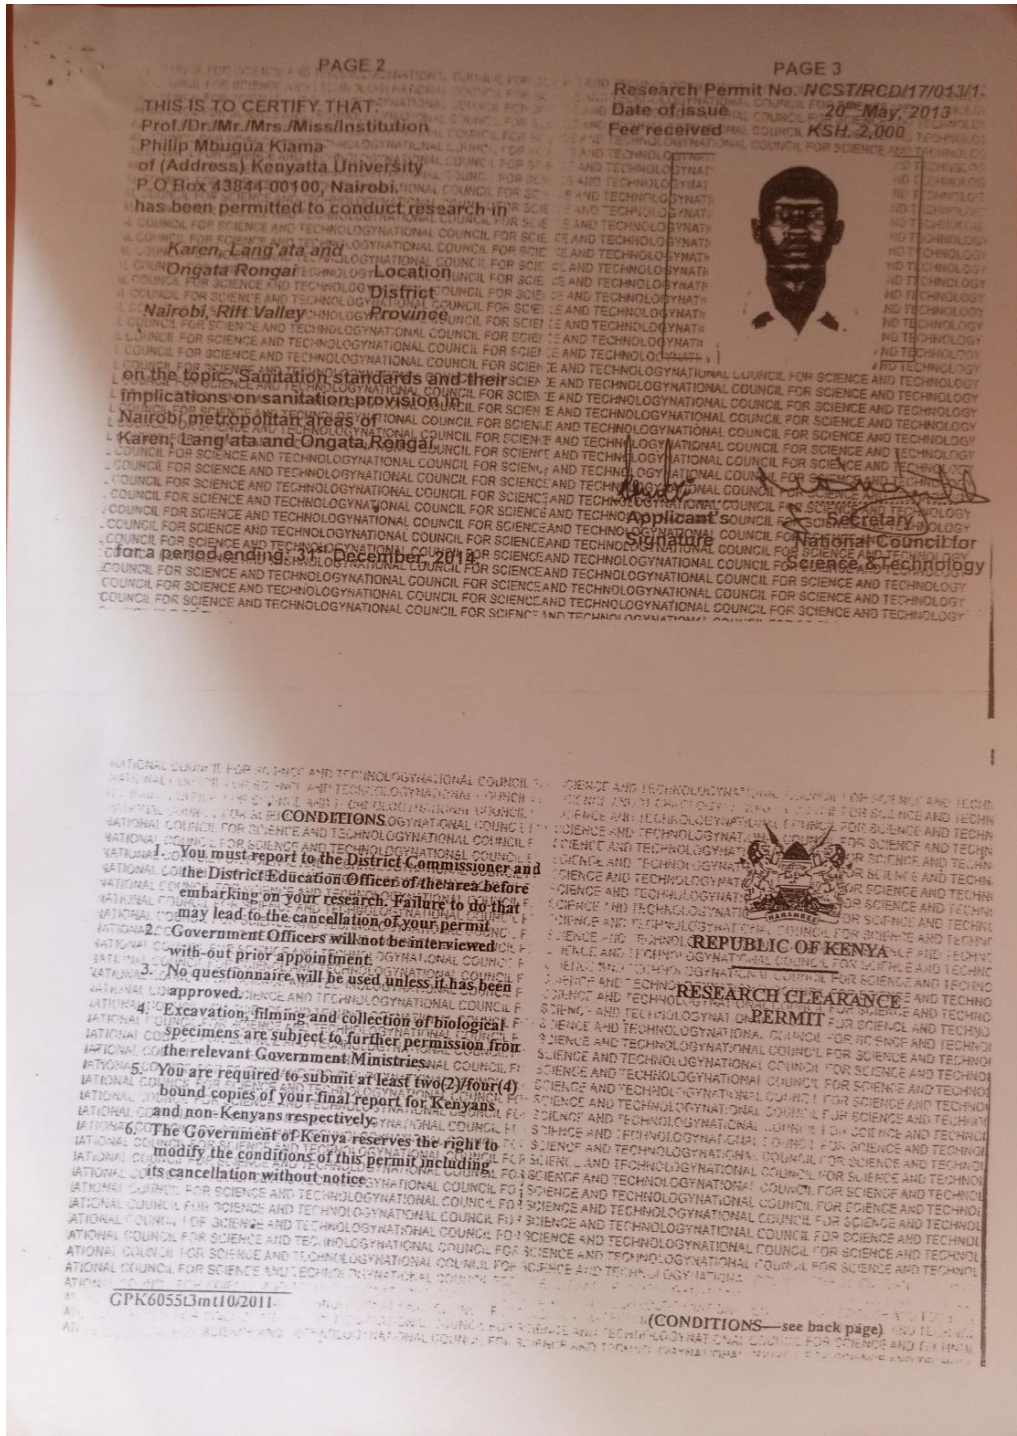 PAGE 2
THIS IS TO CERTIFY THAT:
Prof./Dr./Mr./Mrs./Miss/Institution
Philip Mbugua Kiama
of (Address) Kenyatta University
P.O.Box 43844-00100, Nairobi.
has been permitted to conduct research in
Karen, Lang'ata and
Ongata Rongai Location
District
Nairobi, Rift Valley Province
on the topic. Sanitation standards and their
implications on sanitation provision in
Nairobi metropolitan areas of
Karen, Lang'ata and Ongata Rongai.
for a period ending: 31st December, 2014.
PAGE 3
Research Permit No. NCST/RCD/17/013/1
Date of issue 20th May, 2013
Fee received KSH. 2,000
Applicant's
Signature
Secretary
National Council for
Science & Technology
CONDITIONS
1. You must report to the District Commissioner and
the District Education Officer of the area before
embarking on your research. Failure to do that
may lead to the cancellation of your permit
2. Government Officers will not be interviewed
with-out prior appointment.
3. No questionnaire will be used unless it has been
approved.
4. Excavation, filming and collection of biological
specimens are subject to further permission from
the relevant Government Ministries.
5. You are required to submit at least two(2)/four(4)
bound copies of your final report for Kenyans
and non-Kenyans respectively.
6. The Government of Kenya reserves the right to
modify the conditions of this permit including
its cancellation without notice
GPK6055t3mt10/2011
HARAMBEE
REPUBLIC OF KENYA
RESEARCH CLEARANCE
PERMIT
(CONDITIONS—see back page)